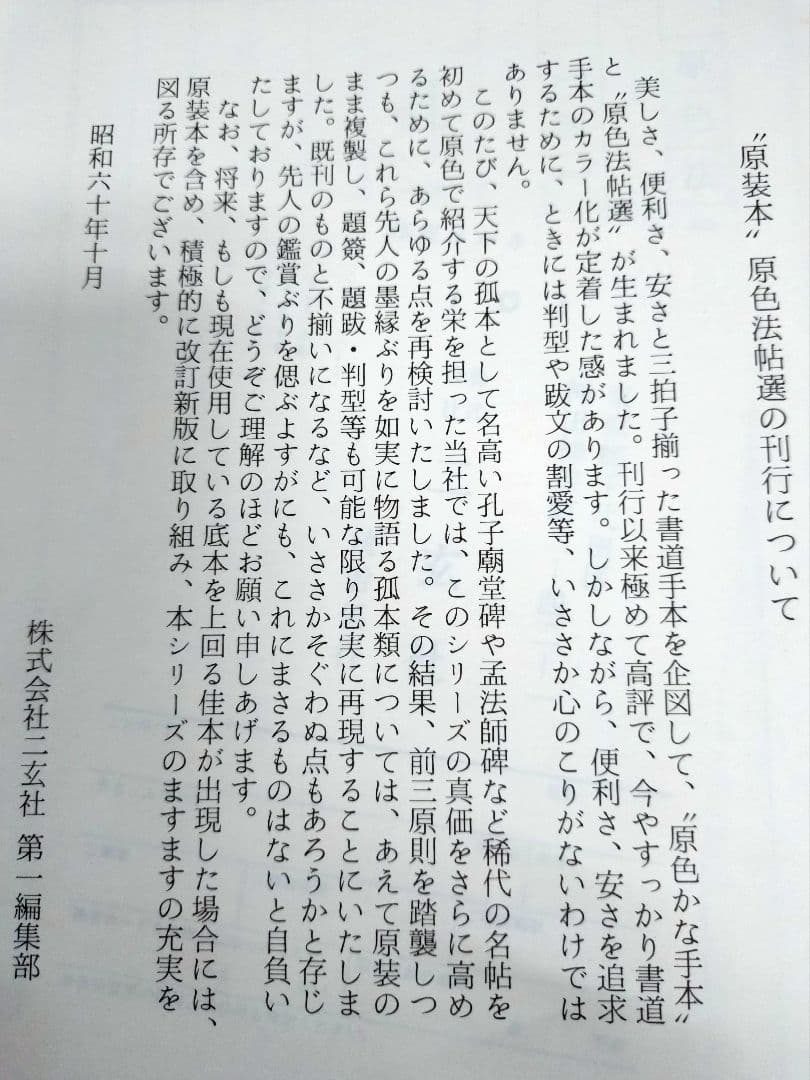 〝原装本〟原色法帖選の刊行について
美しさ、便利さ、安さと三拍子揃った書道手本を企図して、〝原色かな手本〟
と〝原色法帖選〟が生まれました。刊行以来極めて高評で、今やすっかり書道
手本のカラー化が定着した感があります。しかしながら、便利さ、安さを追求
するために、ときには判型や跋文の割愛等、いささか心のこりがないわけでは
ありません。
このたび、天下の孤本として名高い孔子廟堂碑や孟法師碑など稀代の名帖を
初めて原色で紹介する栄を担った当社では、このシリーズの真価をさらに高め
るために、あらゆる点を再検討いたしました。その結果、前三原則を踏襲しつ
つも、これら先人の墨縁ぶりを如実に物語る孤本類については、あえて原装の
まま複製し、題簽、題跋・判型等も可能な限り忠実に再現することにいたしま
した。既刊のものと不揃いになるなど、いささかそぐわぬ点もあろうかと存じ
ますが、先人の鑑賞ぶりを偲ぶよすがにも、これにまさるものはないと自負い
たしておりますので、どうぞご理解のほどお願い申しあげます。
なお、将来、もしも現在使用している底本を上回る佳本が出現した場合には、
原装本を含め、積極的に改訂新版に取り組み、本シリーズのますますの充実を
図る所存でございます。
昭和六十年十月
株式会社二玄社 第一編集部